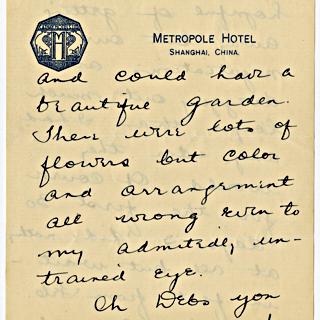 METROPOLE HOTEL
SHANGHAI, CHINA.
and could have a
beautiful garden.
There were lots of
flowers but color
and arrangement
all wrong even to
my admitedly un-
trained eye.
Oh Debs you